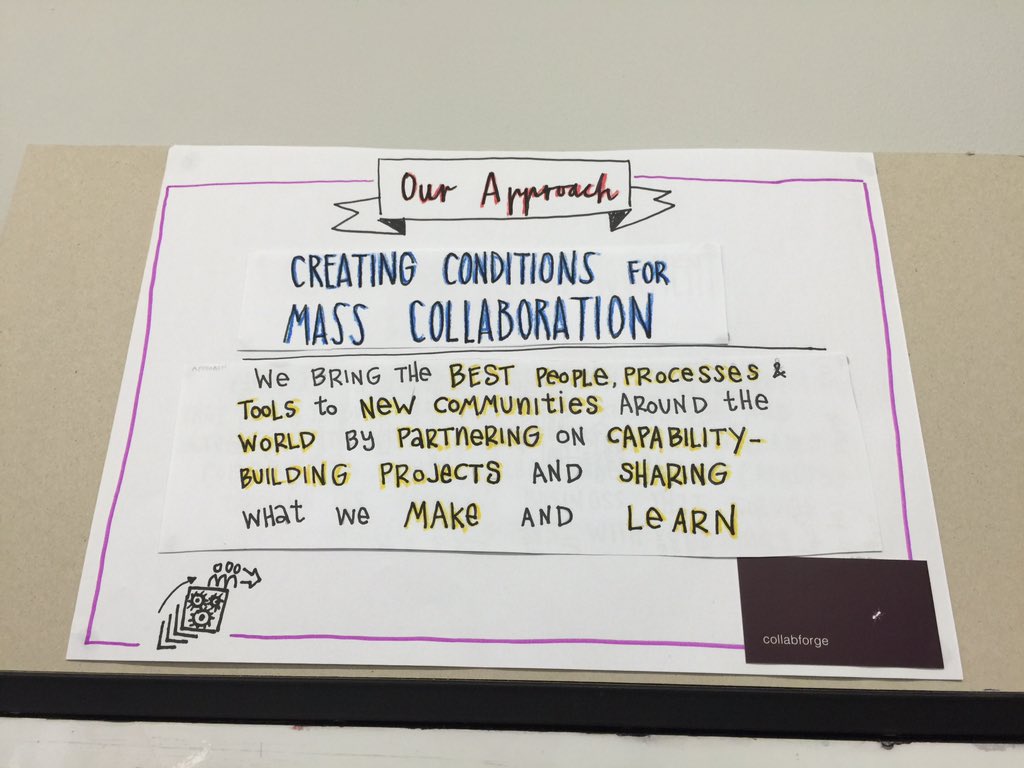 Our Approach
CREATING CONDITIONS FOR
MASS COLLABORATION
We BRING THE BEST PeoPLe, PROCESSES &
TOOLS to NeW COMMUNITIES AROUND the
WORLD BY PARTNeRING ON CAPABILITY-
BUILDING PROJECTS AND SHARING
WHat We MAKe AND LeARN
collabforge